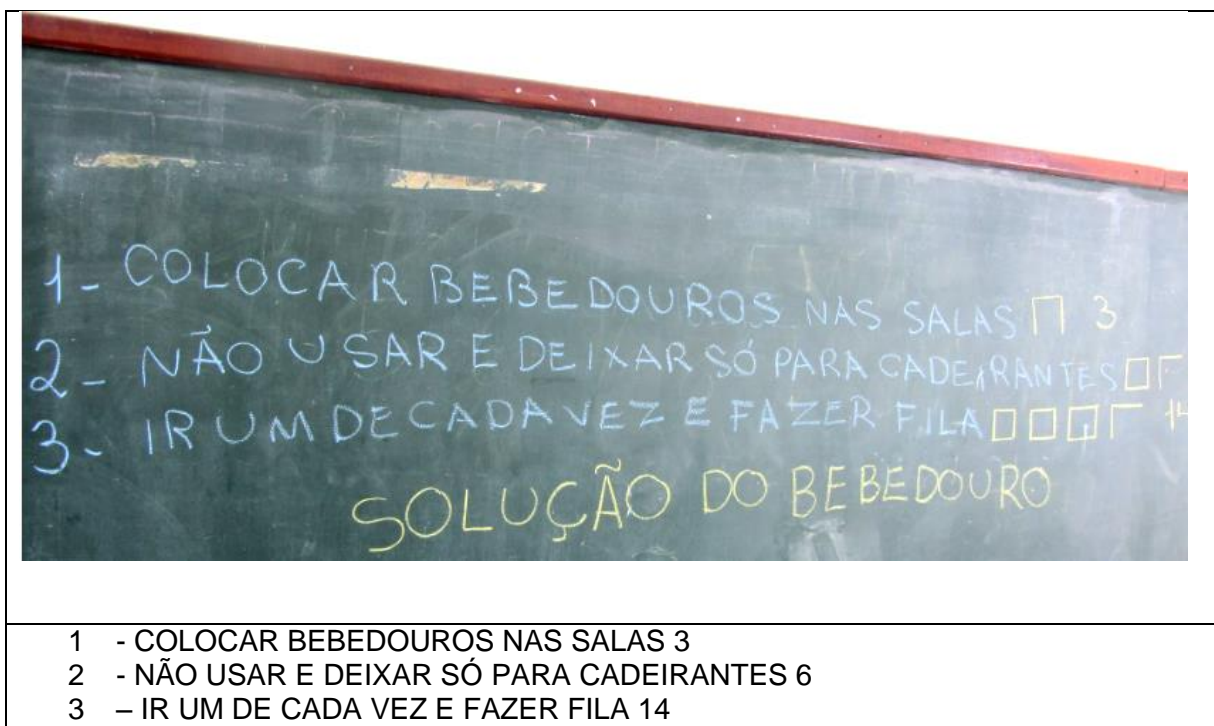 1- COLOCAR BEBEDOUROS NAS SALAS 3
2- NÃO USAR E DEIXAR SÓ PARA CADEIRANTES
3- IR UM DE CADA VEZ E FAZER FILA 14
SOLUÇÃO DO BEBEDOURO
1 - COLOCAR BEBEDOUROS NAS SALAS 3
2 - NÃO USAR E DEIXAR SÓ PARA CADEIRANTES 6
3 – IR UM DE CADA VEZ E FAZER FILA 14